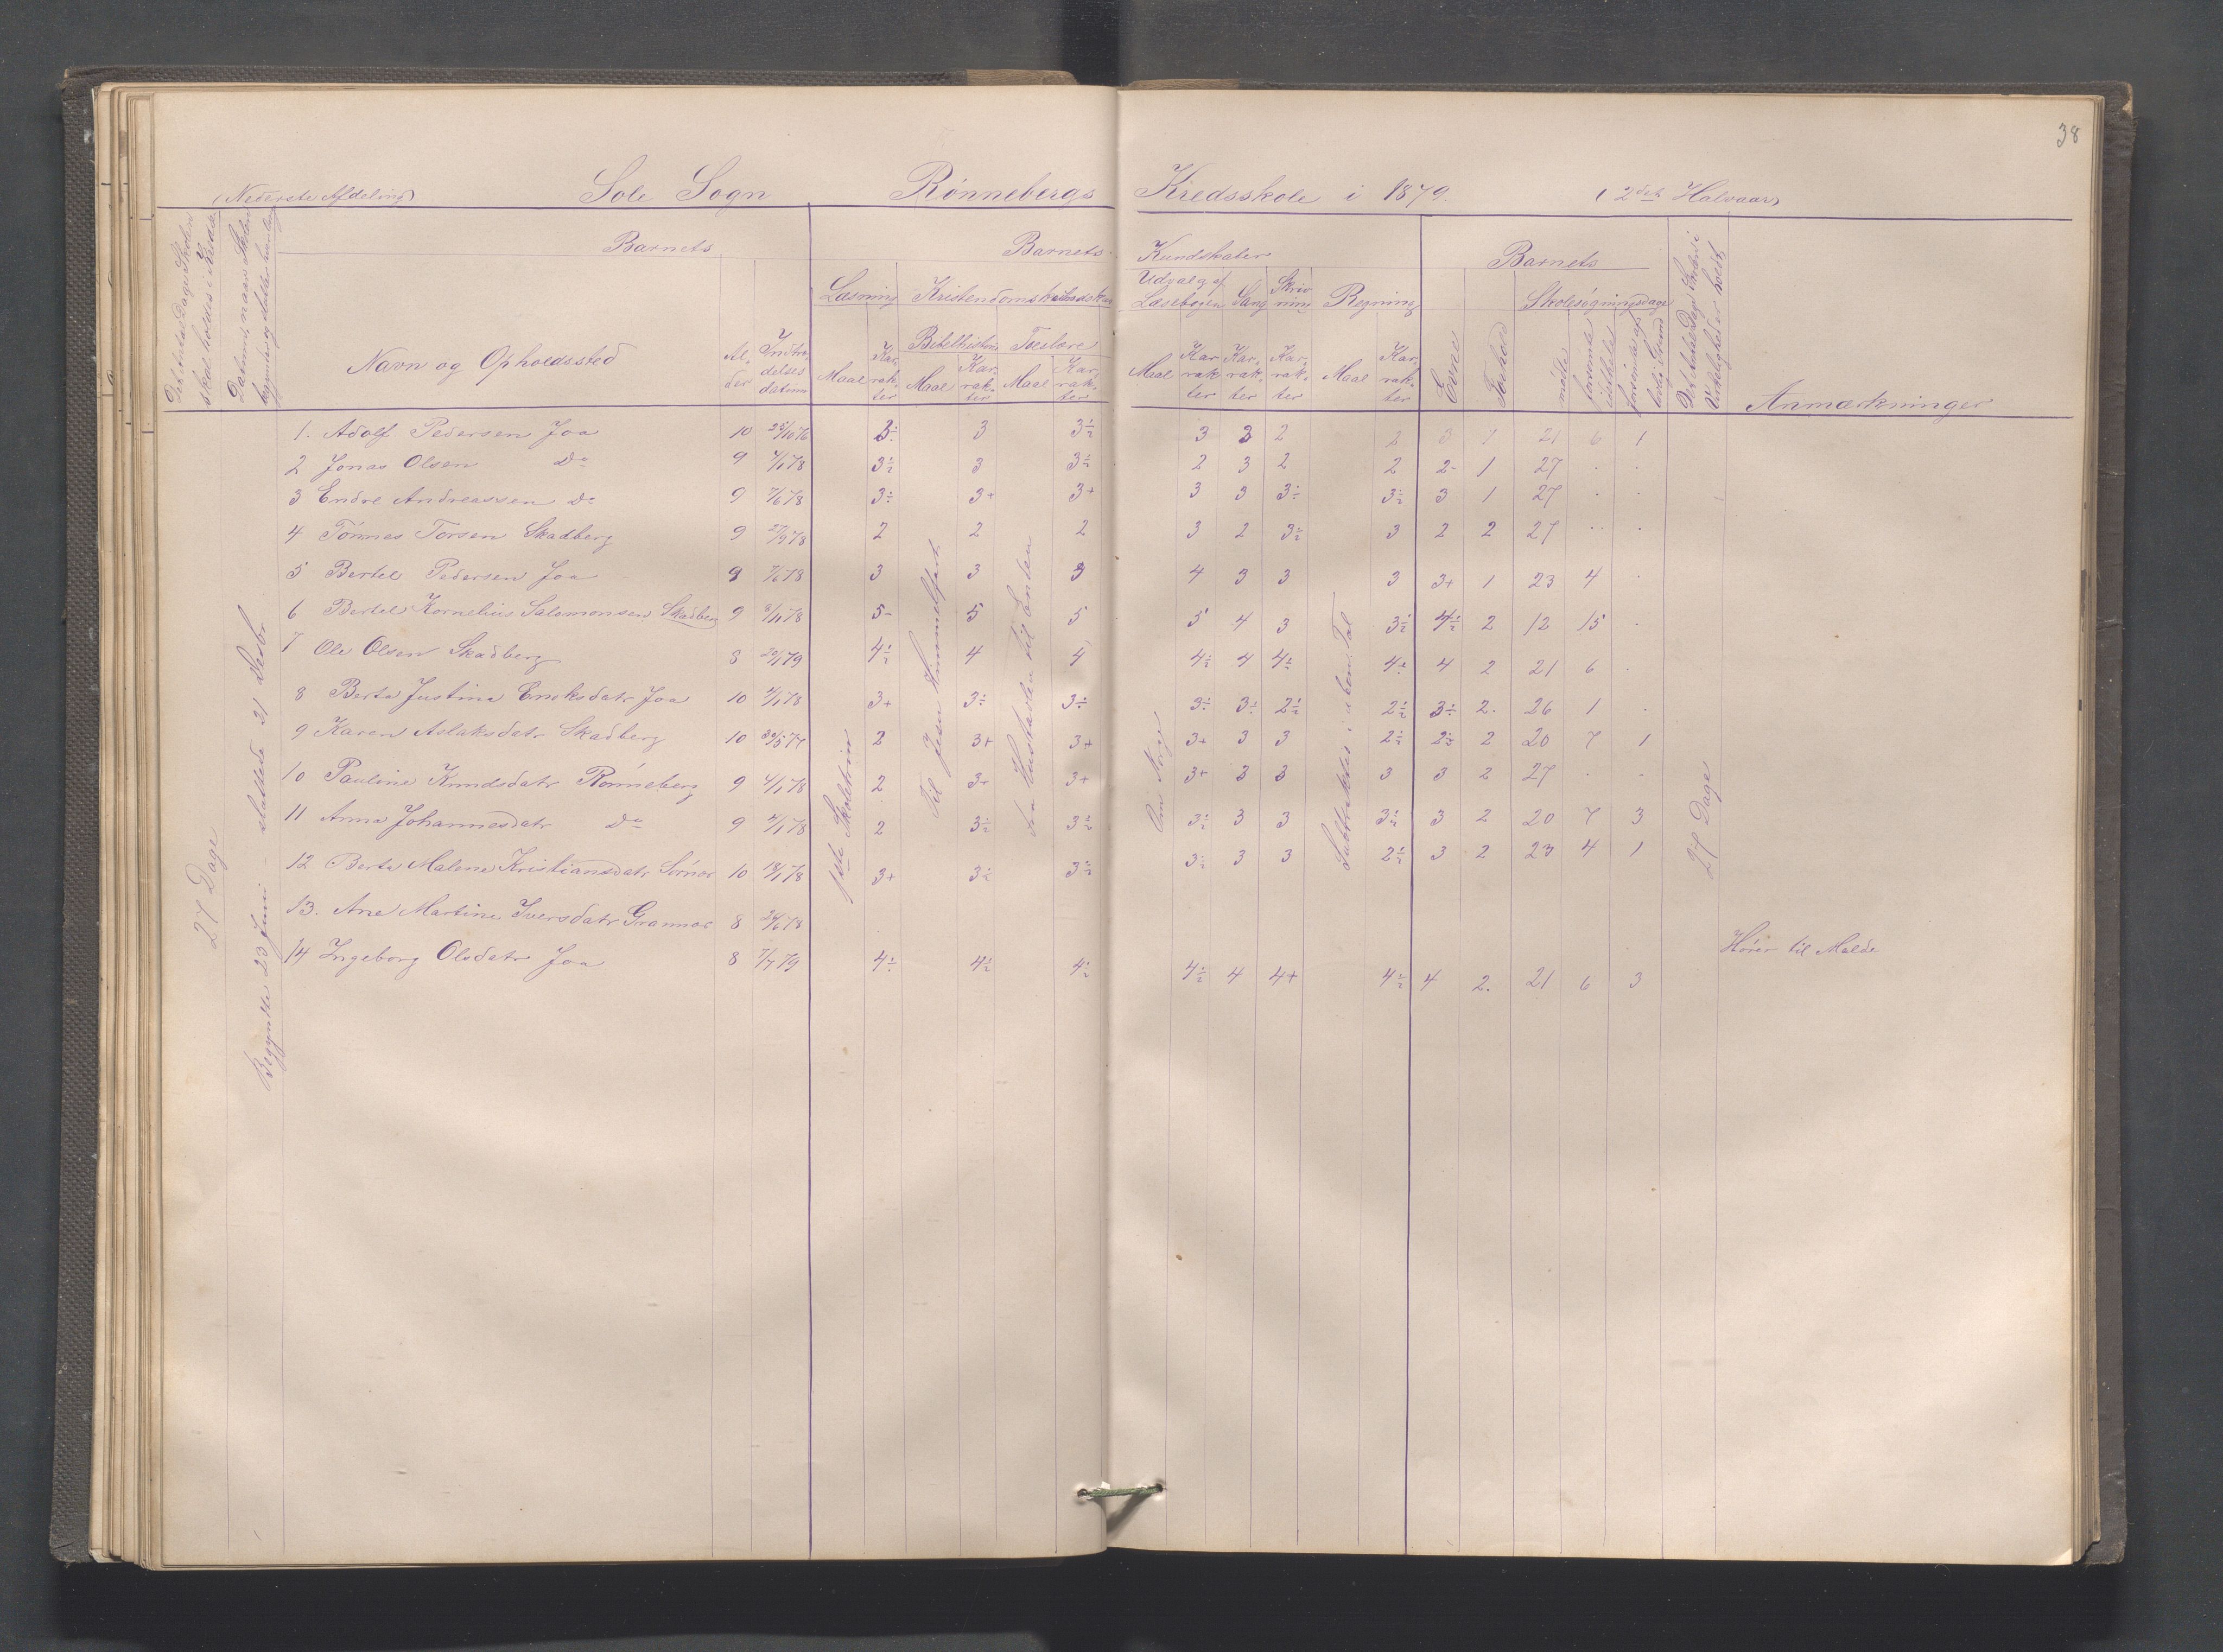 38
(Nederste Afdeling) Sole Sogn Rønnebergs Kredsskole i 1879. (2det Halvaar)
Barnets Barnets Kundskaber Barnets
Læsning Kristendomskundskab Udvalg af Læsebogen Sang Skrivning Regning Skolesøgningsdage
Bibelhistorie Troeslære
Navn og Opholdssted Alder Indtrædelses datum Maal Karakter Maal Karakter Maal Karakter Maal Karakter Karakter Karakter Maal Karakter Evne Forhold mødte Anmærkninger
27 Dage
Begyndte 23 Juni sluttede 31 Decbr
1. Adolf Pedersen Joa 10 25/10 76 3÷ 3 3÷ 3 3 2 2 3 1 21 6 1
2 Jonas Olsen Do 9 4/1 78 3÷ 3 3÷ 2 3 2 2 2- 1 27 . .
3 Endre Andreassen Do 9 7/6 78 3÷ 3+ 3+ 3 3 3÷ 3÷ 3 1 27 . .
4 Tønnes Torsen Skadberg 9 27/9 78 2 2 2 3 2 3÷ 3 2 2 27 . .
5 Bertel Pedersen Joa 9 7/6 78 3 3 3 4 3 3 3 3+ 1 23 4 .
6 Bertel Kornelius Salomonsen Skadberg 9 8/11 78 5- 5 5 5 4 3 3÷ 4÷ 2 12 15 .
7 Ole Olsen Skadberg 8 20/1 79 4÷ 4 4 4÷ 4 4÷ 4÷ 4 2 21 6 .
8 Berta Justina Enoksdatr Joa 10 4/1 78 3+ 3÷ 3÷ 3÷ 3÷ 2÷ 2÷ 3÷ 2. 26 1 .
9 Karen Aslaksdatr Skadberg 10 30/5 77 2 3+ 3+ 3+ 3 3 2÷ 2÷ 2 20 7 1
10 Pauline Knudsdatr Rønneberg 9 4/1 78 2 3+ 3+ 3+ 3 3 3 3 2 27 . .
11 Anna Johannesdatr Do 9 4/1 78 2 3÷ 3÷ 3÷ 3 3 3÷ 3 2 20 7 3
12 Berta Malene Kristiansdatr Sørnes 10 18/1 78 3+ 3÷ 3÷ 3÷ 3 3 2÷ 3 2 23 4 1
13. Ane Martine Iversdatr Grannes 8 24/6 78 Hører til Malde
14 Ingeborg Olsdatr Joa 8 7/7 79 4÷ 4÷ 4÷ 4÷ 4 4+ 4÷ 4 2. 21 6 3
Til Jesu Himmelfart.
fra Hustavlen til Enden
Om Norge
27 Dage